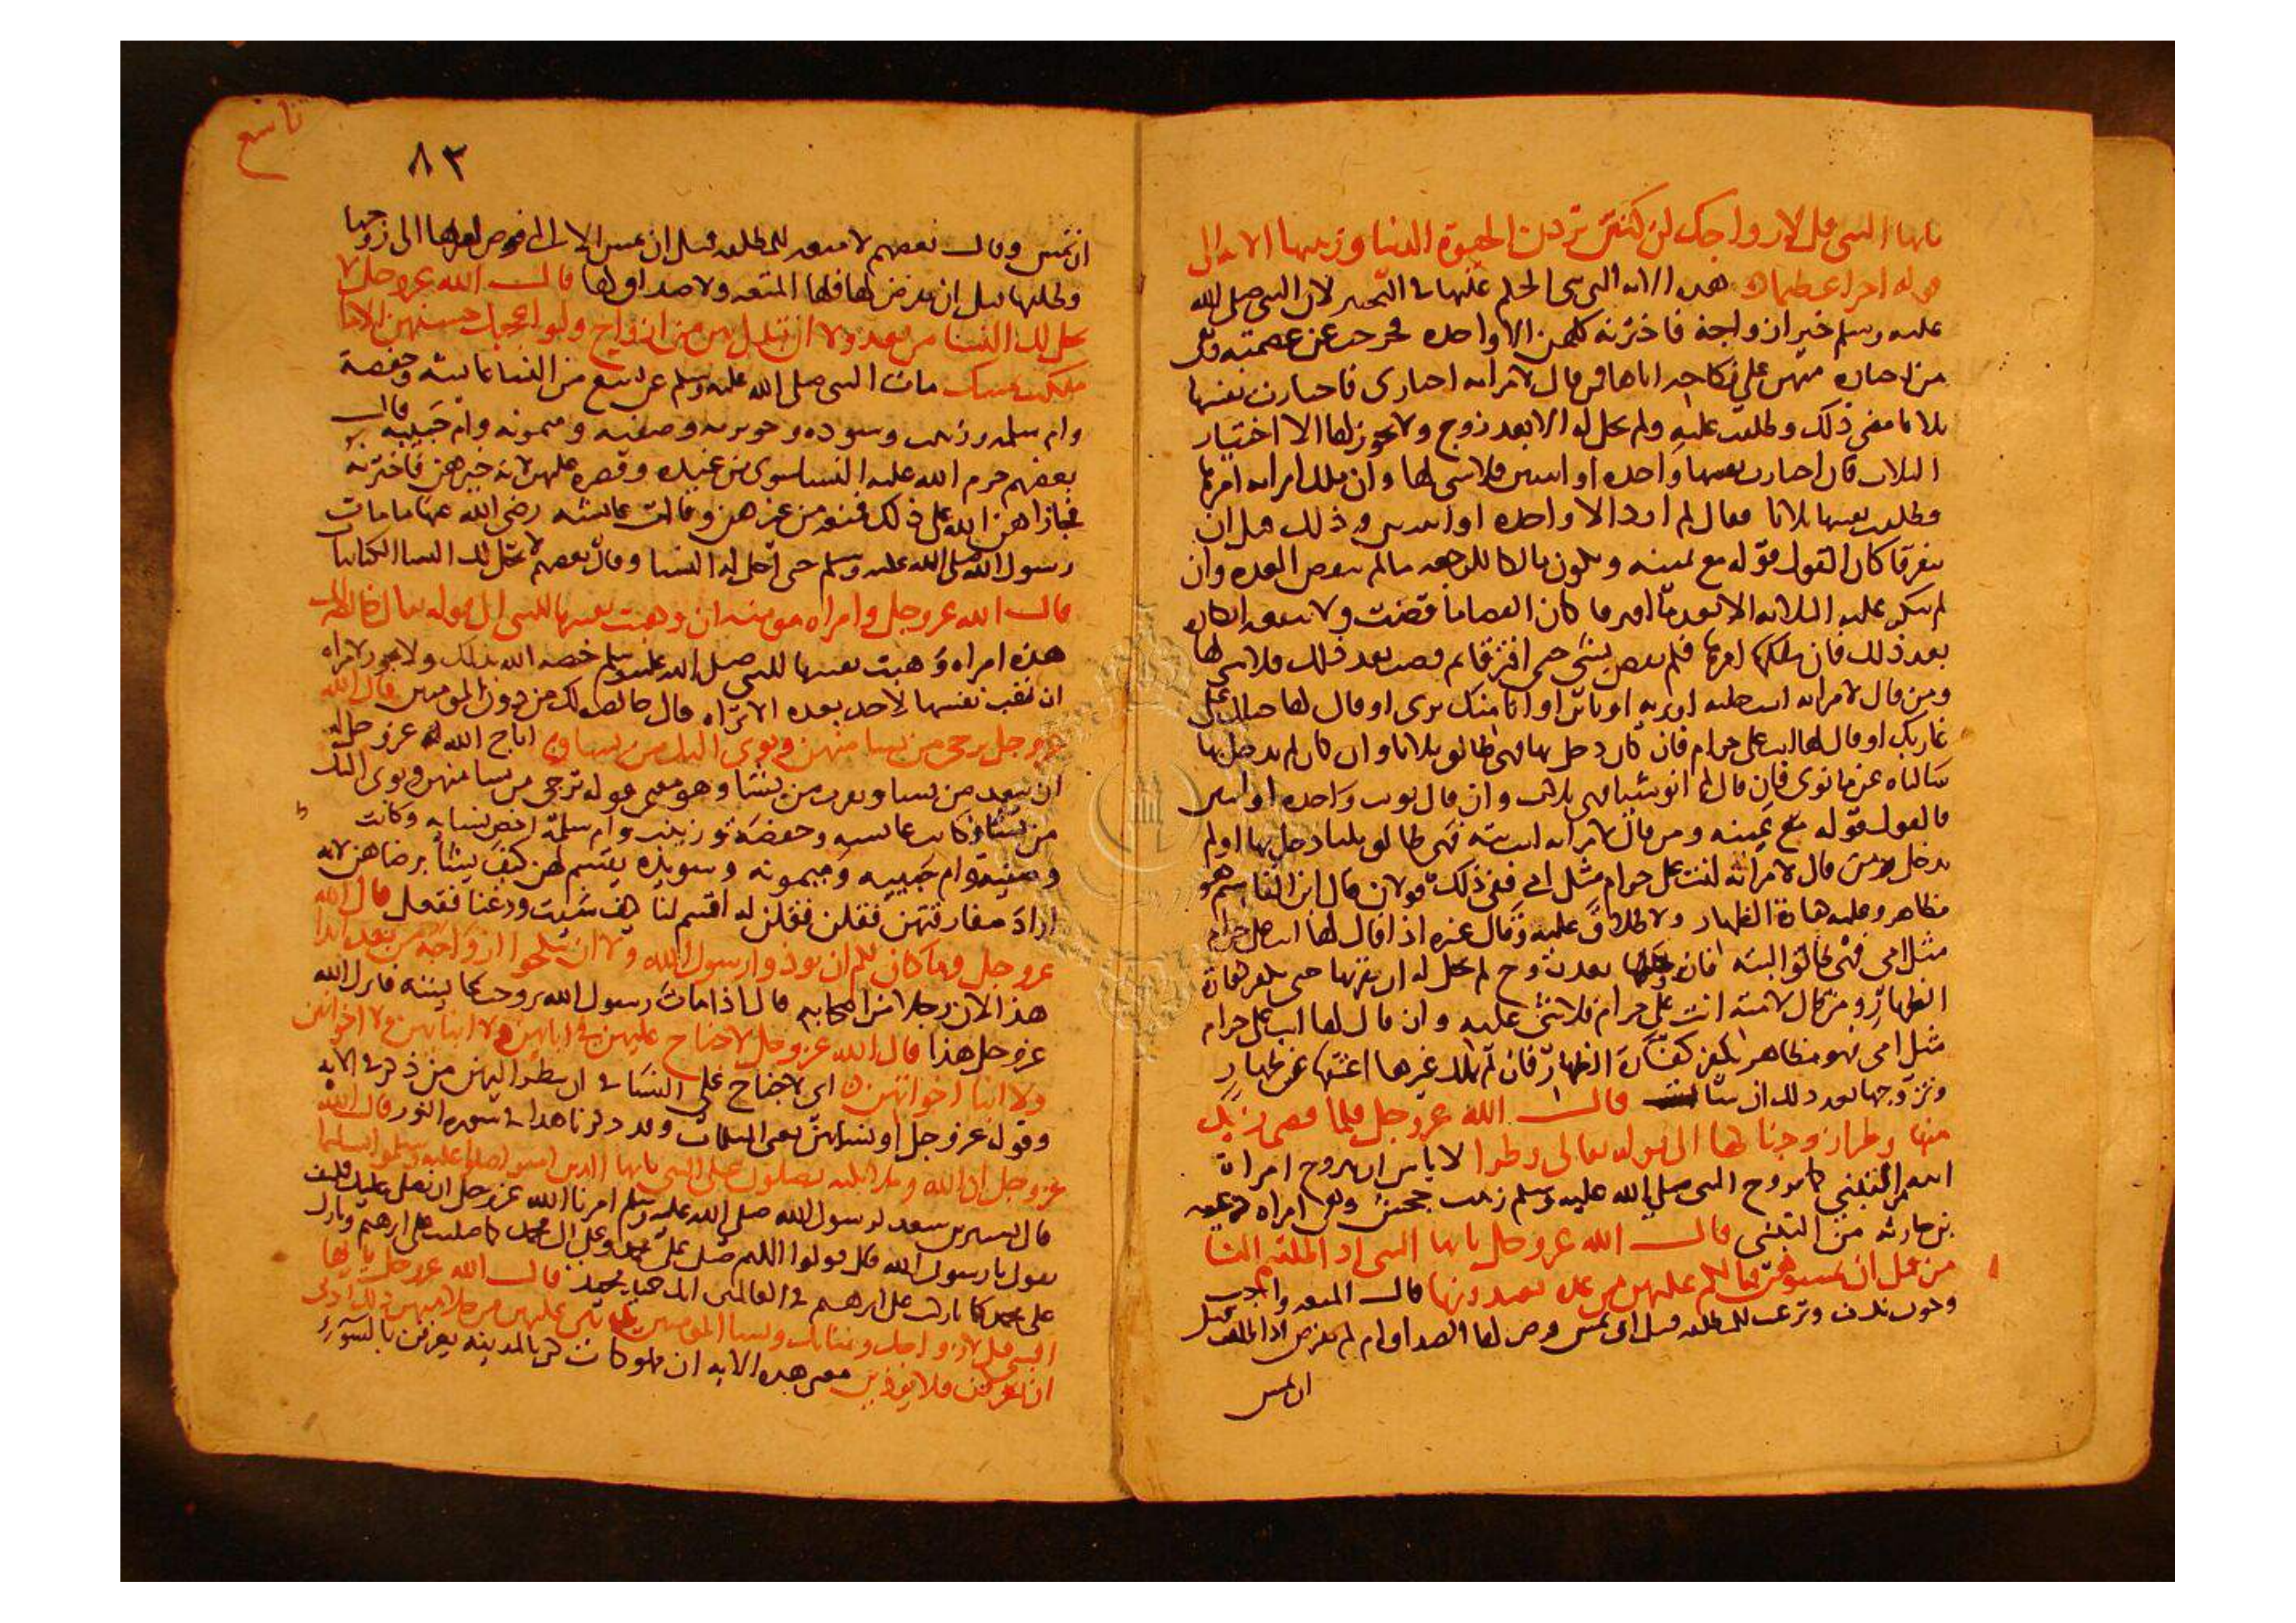 يايها النبي قل لازواجك ان كنتن تردن الحيوة الدنيا وزينتها الايه الى
قوله اجرا عظيما هذه الايه التي الحكم عليها في التخيير لان النبي صلى الله
عليه وسلم خير ازواجه فاخترنه كلهن الا واحده فخرجت عن عصمته
من اختاره منهن على نكاحه اياها فمن قال لامراته اختارى فاختارت نفسها
ثلاثا مضى ذلك وطلقت عليه ولم تحل له الا بعد زوج ولا يجوز لها الا اختيار
الثلاث فان اختارت نفسها واحده او اثنتين فلا شي لها وان ملك امراته امرها
فطلقت نفسها ثلاثا فقال لم ارد الا واحده او اثنتين وذلك قبل ان
يتفرقا كان القول قوله مع يمينه ويكون مالكا للرجعه ما لم تنقض العده وان
لم ينكر عليه الثلاثه الا بعد كان القضا ما قضت ولا ينفعه انكاره
بعد ذلك فان ملكها امرها فلم تقض بشي حتى افترقا ثم قضت بعد ذلك فلا شي لها
ومن قال لامراته انت خليه او بريه او باين او انا منك برى او قال لها حبلك على
غاربك او قال لها انت على حرام فان كان دخل بها فهي طالق ثلاثا وان كان لم يدخل بها
سالناه عن ما نوى فان قال لم انو شيا فهي ثلاث وان قال نويت واحده او اثنتين
فالقول قوله مع يمينه ومن قال لامراته انت بته فهي طالق ثلثا دخل بها او لم
يدخل ومن قال لامراته انت على حرام مثل امي ففي ذلك قولان قال ابن القاسم هو
مظاهر وعليه كفارة الظهار ولا طلاق عليه وقال غيره اذا قال لها انت على حرام
مثل امي فهي طالق البته فان بعد زوج لم تحل له ان يقربها حتى يكفر كفارة
الظهار ومن قال لامته انت على حرام فلا شي عليه وان قال لها انت على حرام
مثل امي فهو مظاهر يكفر كفارة الظهار فان لم يملك غيرها اعتقها عن ظهاره
وتزوجها بعد ذلك ان شا قال الله عز وجل فلما قضى زيد
منها وطرا زوجناكها الى قوله تعالى وطرا لا باس ان يتزوج امراة
ابنه من التبني كما تزوج النبي صلى الله عليه وسلم زينب بنت جحش وهي امراة
بن حارثه من التبني قال الله عز وجل يايها النبي اذا طلقتم النسا
من قبل ان تمسوهن فما لكم عليهن من عده تعتدونها قال المتعه واجب
للمطلقه قبل ان تمس فرض لها الصداق ام لم يفرض اذا طلقت قبل
ان تمس
تاسع
٨٣
ان تمس وقال بعضهم لا متعه للمطلقه قبل ان تمس الا التي فوض امرها الى زوجها
وطلقها قبل ان يفرض لها فلها المتعه ولا صداق لها قال الله عز وجل لا
يحل لك النسا من بعد ولا ان تبدل بهن من ازواج ولو اعجبك حسنهن الا ما
ملكت يمينك مات النبي صلى الله عليه وسلم عن تسع من النسا عايشه وحفصة
وام سلمه وزينب وسوده وجويريه وصفيه وميمونه وام حبيبه قال
بعضهم حرم الله عليه النسا سوى من عنده وقصره عليهن لانه خيرهن فاخترنه
فجازاهن الله على ذلك فمنعه من غيرهن وقالت عايشه رضي الله عنها ما مات
رسول الله صلى الله عليه وسلم حتى احل له النسا وقال بعضهم لا تحل لك النسا الكتابيا
قال الله عز وجل وامراه مومنه ان وهبت نفسها للنبي الى قوله تعالى خالصه لك
هذه امراه وهبت نفسها للنبي صلى الله عليه وسلم خصه الله بذلك ولا يجوز لامراه
ان تهب نفسها لاحد بعده الا تراه قال خالصه لك من دون المومنين قال الله
عز وجل ترجى من تشا منهن وتوى اليك من تشا اباح الله له عز وجل
ان يبعد من يشا ويقرب من يشا وهو معنى قوله ترجى من تشا منهن وتوى اليك
من تشا وكانت عايشه وحفصه وزينب وام سلمة اخص نسايه وكانت
وصفيه وام حبيبه وميمونه وسوده يقسم لهن كيف يشا برضاهن لانه
اراد مفارقتهن فقلن له اقسم لنا كيف شيت ودعنا ففعل قال الله
عز وجل وما كان لكم ان توذوا رسول الله ولا ان تنكحوا ازواجه من بعده ابدا
هذا لان رجلا من اصحابه قال اذا مات رسول الله تزوجت عايشه فانزل الله
عز وجل هذا قال الله عز وجل لا جناح عليهن في ابايهن ولا ابنايهن ولا اخوانهن
ولا ابنا اخوانهن اي لا جناح على النسا في ان ينظر اليهن من ذكر في الايه
وقوله عز وجل او نسايهن يعني المسلمات وقد ذكرنا هذا في سوره النور قال الله
عز وجل ان الله وملايكته يصلون على النبي يايها الذين امنوا صلوا عليه وسلموا تسليما
قال بشير بن سعد لرسول الله صلى الله عليه وسلم امرنا الله عز وجل ان نصلي عليك فكيف
نقول يا رسول الله قال قولوا اللهم صل على محمد وعلى ال محمد كما صليت على ابرهيم وبارك
على محمد كما باركت على ابرهيم في العالمين انك حميد مجيد قال الله عز وجل يايها
النبي قل لازواجك وبناتك ونسا المومنين يدنين عليهن من جلابيبهن ذلك ادنى
ان يعرفن فلا يوذين معنى هذه الايه ان